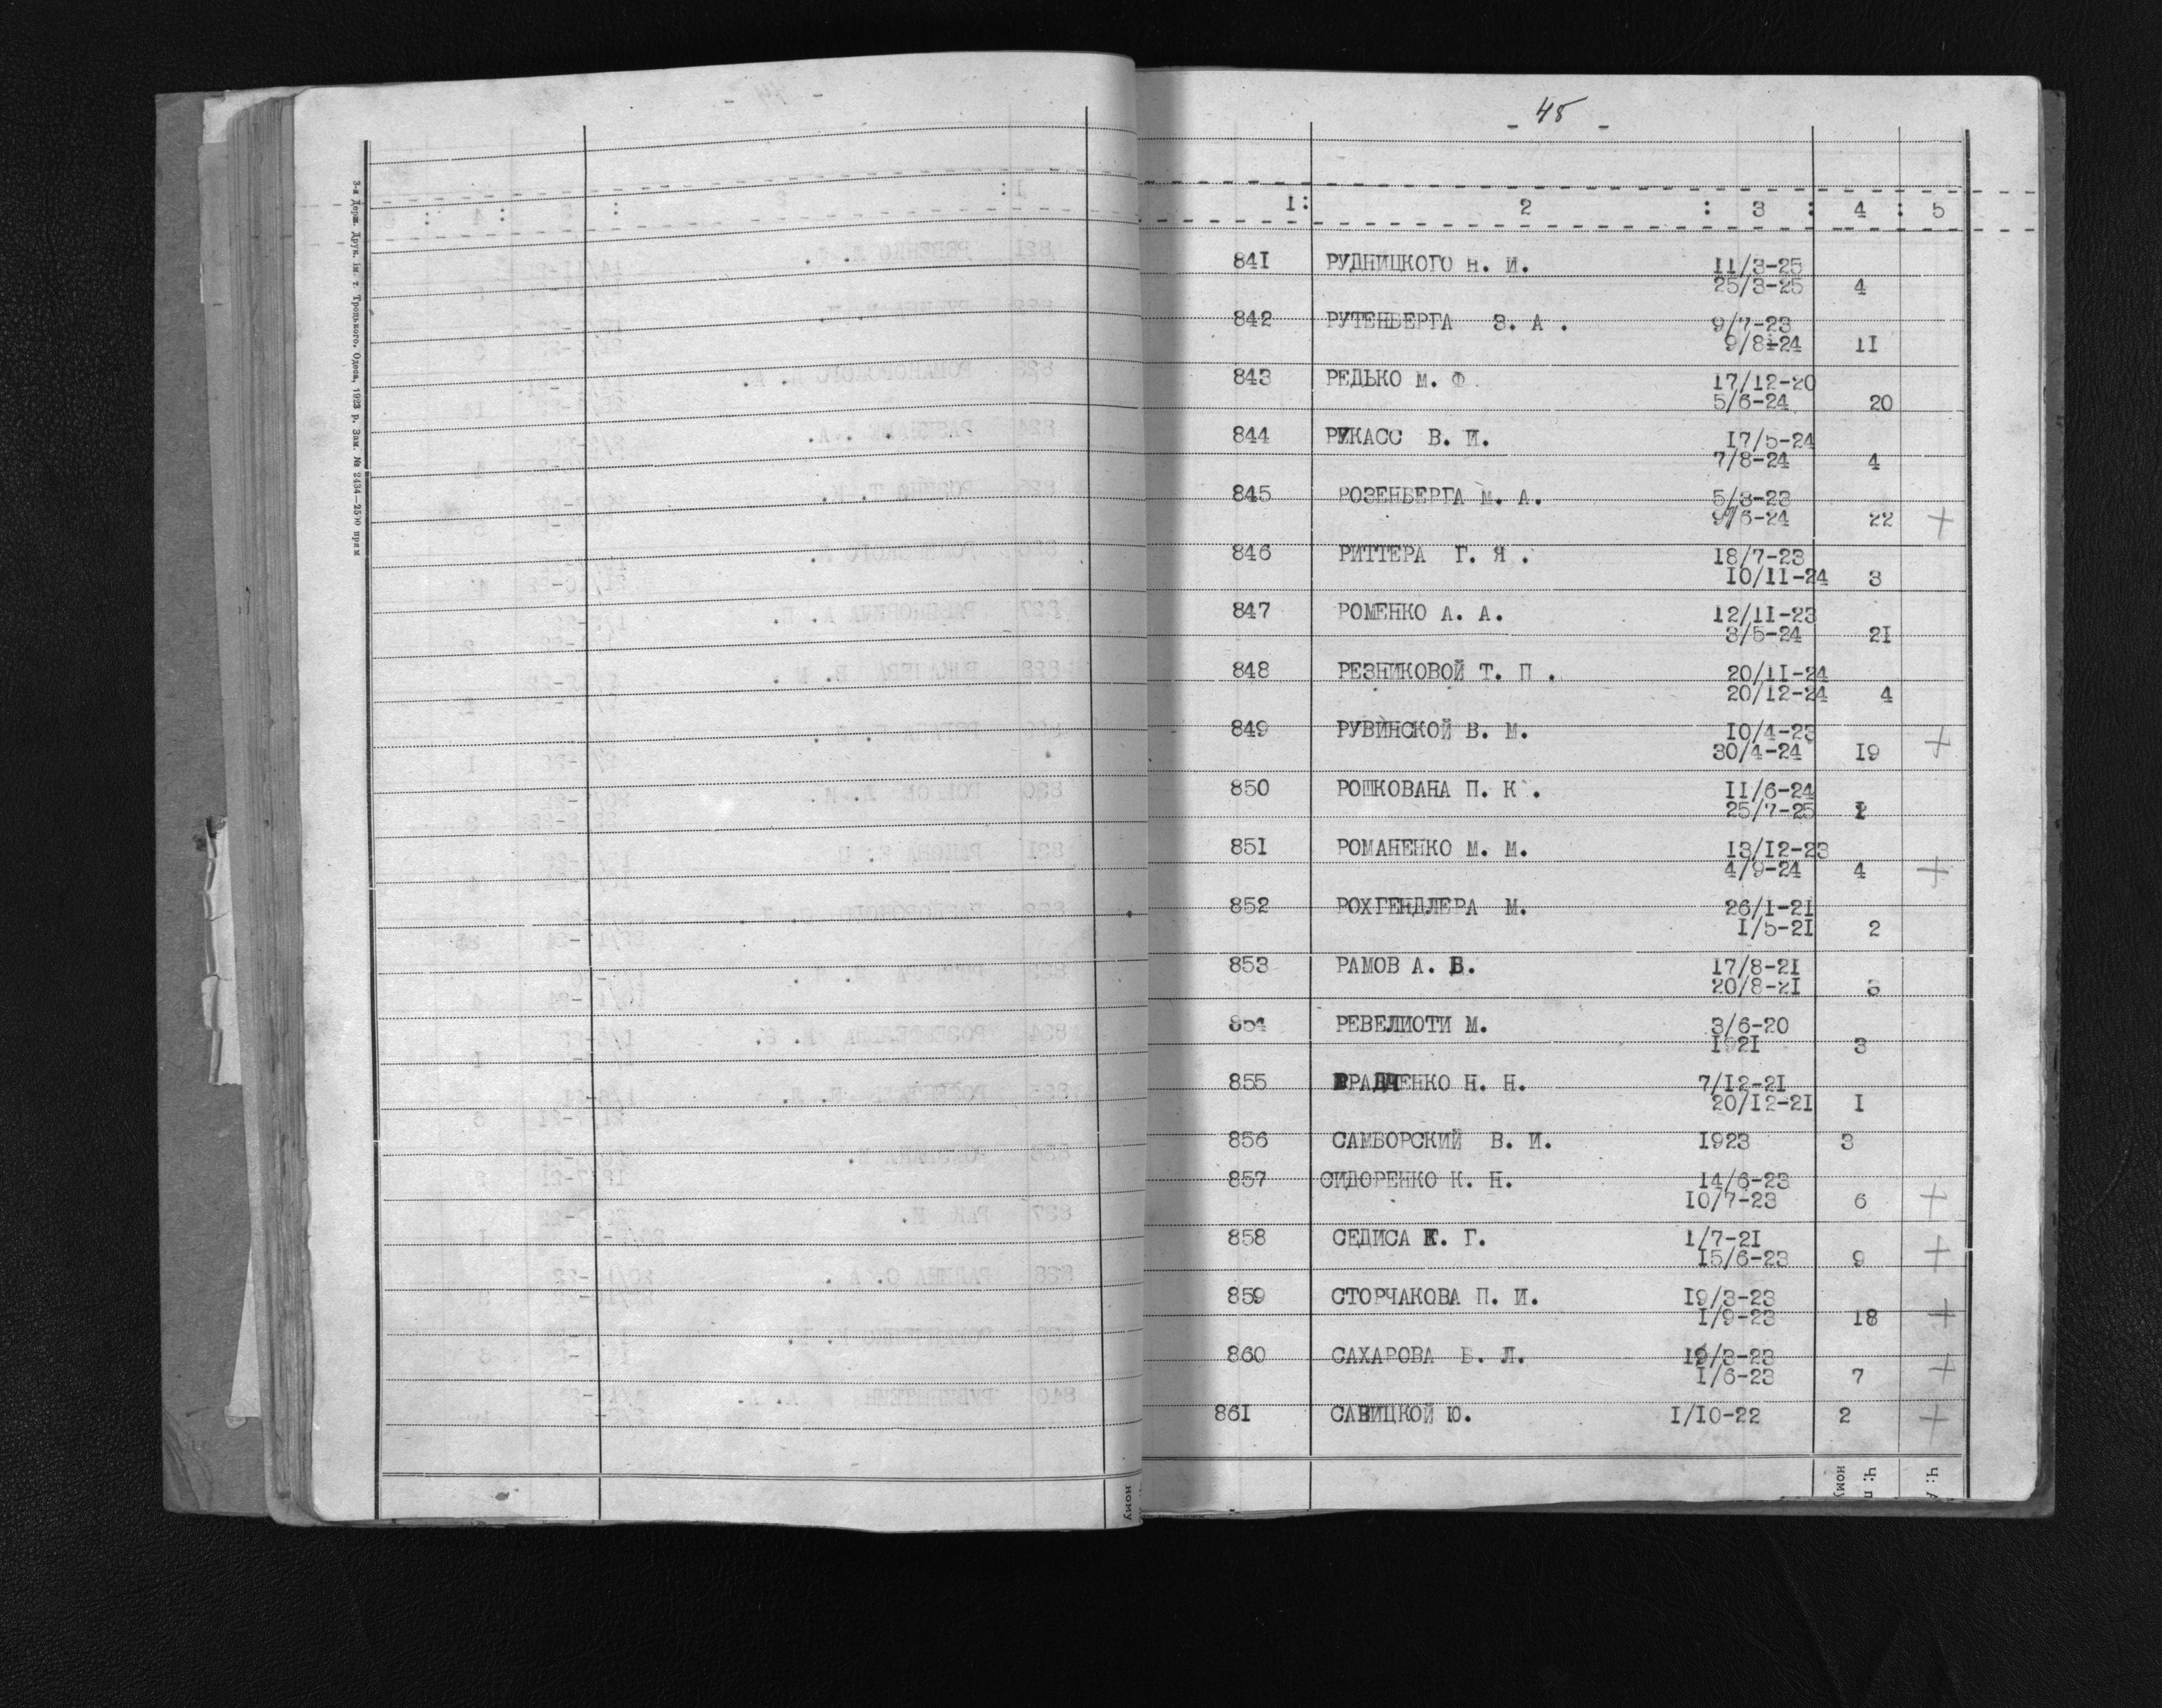 3-я Держ. Друк. ім. т. Троцького. Одеса, 1923 р. Зам. № 2434—2500 прим
- 45 -
1: 2 : 3 : 4 : 5
841 РУДНИЦКОГО Н. И. 11/3-25
25/3-25 4
842 РУТЕНБЕРГА З. А. 9/7-23
9/8-24 11
843 РЕДЬКО М. Ф 17/12-20
5/6-24 20
844 РУКАСС В. И. 17/5-24
7/8-24 4
845 РОЗЕНБЕРГА М. А. 5/3-23
9/6-24 22 +
846 РИТТЕРА Г. Я. 18/7-23
10/11-24 3
847 РОМЕНКО А. А. 12/11-23
3/5-24 21
848 РЕЗНИКОВОЙ Т. П. 20/11-24
20/12-24 4
849 РУВИНСКОЙ В. М. 10/4-23
30/4-24 19 +
850 РОШКОВАНА П. К. 11/6-24
25/7-25
851 РОМАНЕНКО М. М. 13/12-23
4/9-24 4 +
852 РОХГЕНДЛЕРА М. 26/1-21
1/5-21 2
853 РАМОВ А. В. 17/8-21
20/8-21 3
854 РЕВЕЛИОТИ М. 3/6-20
1921 3
855 РАДЧЕНКО Н. Н. 7/12-21
20/12-21 1
856 САМБОРСКИЙ В. И. 1923 3
857 СИДОРЕНКО К. Н. 14/6-23
10/7-23 6 +
858 СЕДИСА К. Г. 1/7-21
15/6-23 9 +
859 СТОРЧАКОВА П. И. 19/3-23
1/9-23 18 +
860 САХАРОВА Б. Л. 19/3-23
1/6-23 7 +
861 САВИЦКОЙ Ю. 1/10-22 2 +
ному
ному